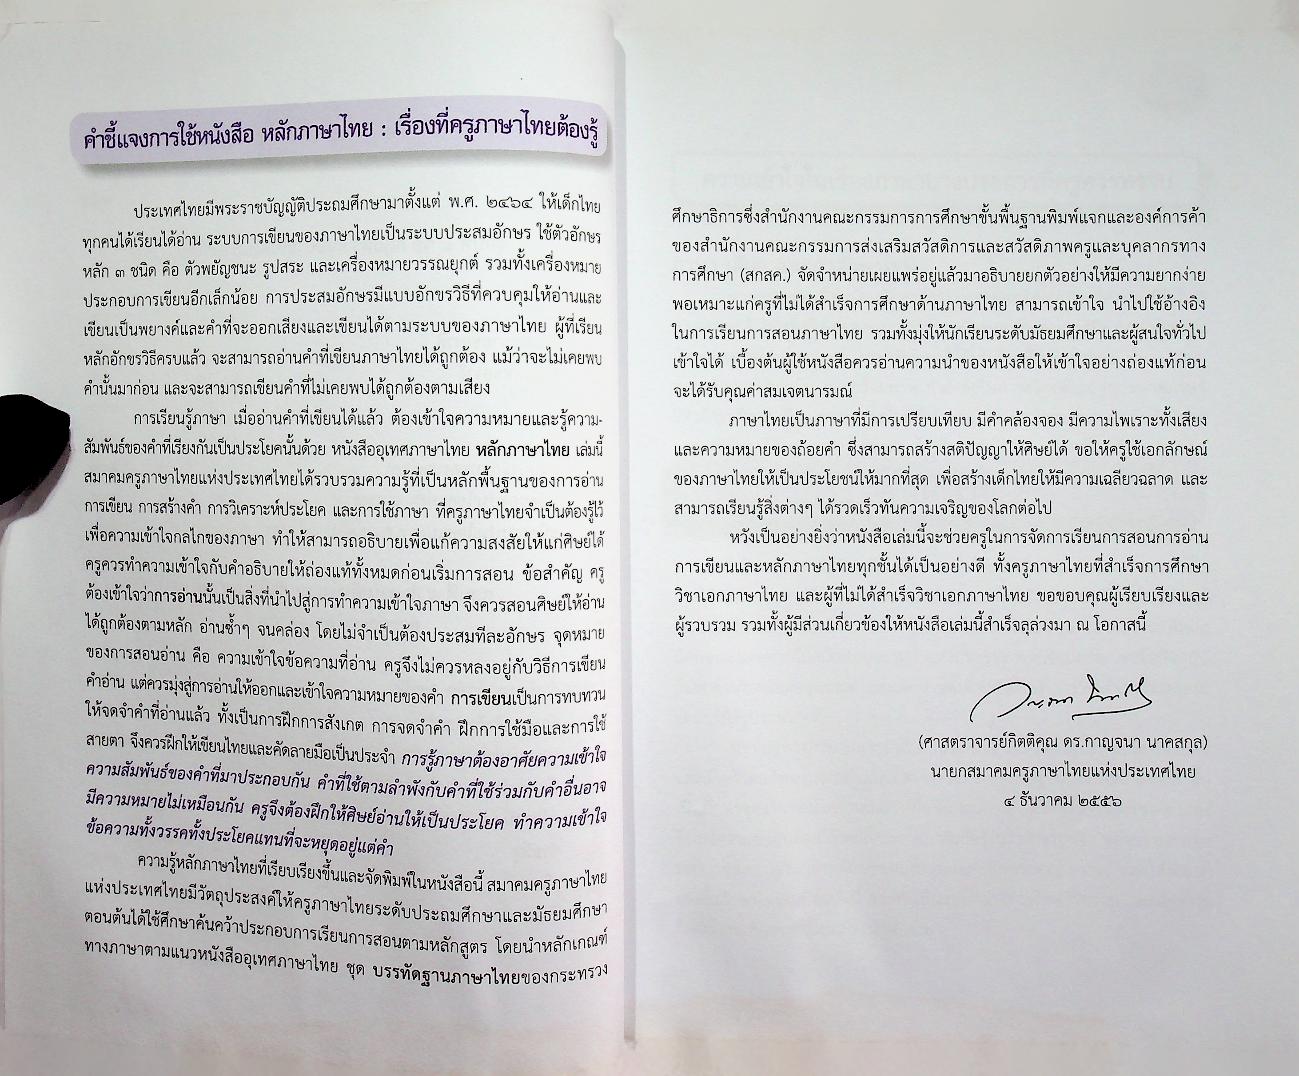 คำชี้แจงการใช้หนังสือ หลักภาษาไทย : เรื่องที่ครูภาษาไทยต้องรู้
ประเทศไทยมีพระราชบัญญัติประถมศึกษามาตั้งแต่ พ.ศ. ๒๔๖๔ ให้เด็กไทย
ทุกคนได้เรียนได้อ่าน ระบบการเขียนของภาษาไทยเป็นระบบประสมอักษร ใช้ตัวอักษร
หลัก ๓ ชนิด คือ ตัวพยัญชนะ รูปสระ และเครื่องหมายวรรณยุกต์ รวมทั้งเครื่องหมาย
ประกอบการเขียนอีกเล็กน้อย การประสมอักษรมีแบบอักขรวิธีที่ควบคุมให้อ่านและ
เขียนเป็นพยางค์และคำที่จะออกเสียงและเขียนได้ตามระบบของภาษาไทย ผู้ที่เรียน
หลักอักขรวิธีครบแล้ว จะสามารถอ่านคำที่เขียนภาษาไทยได้ถูกต้อง แม้ว่าจะไม่เคยพบ
คำนั้นมาก่อน และจะสามารถเขียนคำที่ไม่เคยพบได้ถูกต้องตามเสียง
การเรียนรู้ภาษา เมื่ออ่านคำที่เขียนได้แล้ว ต้องเข้าใจความหมายและรู้ความ-
สัมพันธ์ของคำที่เรียงกันเป็นประโยคนั้นด้วย หนังสืออุเทศภาษาไทย หลักภาษาไทย เล่มนี้
สมาคมครูภาษาไทยแห่งประเทศไทยได้รวบรวมความรู้ที่เป็นหลักพื้นฐานของการอ่าน
การเขียน การสร้างคำ การวิเคราะห์ประโยค และการใช้ภาษา ที่ครูภาษาไทยจำเป็นต้องรู้ไว้
เพื่อความเข้าใจกลไกของภาษา ทำให้สามารถอธิบายเพื่อแก้ความสงสัยให้แก่ศิษย์ได้
ครูควรทำความเข้าใจกับคำอธิบายให้ถ่องแท้ทั้งหมดก่อนเริ่มการสอน ข้อสำคัญ ครู
ต้องเข้าใจว่าการอ่านนั้นเป็นสิ่งที่นำไปสู่การทำความเข้าใจภาษา จึงควรสอนศิษย์ให้อ่าน
ได้ถูกต้องตามหลัก อ่านซ้ำๆ จนคล่อง โดยไม่จำเป็นต้องประสมทีละอักษร จุดหมาย
ของการสอนอ่าน คือ ความเข้าใจข้อความที่อ่าน ครูจึงไม่ควรหลงอยู่กับวิธีการเขียน
คำอ่าน แต่ควรมุ่งสู่การอ่านให้ออกและเข้าใจความหมายของคำ การเขียนเป็นการทบทวน
ให้จดจำคำที่อ่านแล้ว ทั้งเป็นการฝึกการสังเกต การจดจำคำ ฝึกการใช้มือและการใช้
สายตา จึงควรฝึกให้เขียนไทยและคัดลายมือเป็นประจำ การรู้ภาษาต้องอาศัยความเข้าใจ
ความสัมพันธ์ของคำที่มาประกอบกัน คำที่ใช้ตามลำพังกับคำที่ใช้ร่วมกับคำอื่นอาจ
มีความหมายไม่เหมือนกัน ครูจึงต้องฝึกให้ศิษย์อ่านให้เป็นประโยค ทำความเข้าใจ
ข้อความทั้งวรรคทั้งประโยคแทนที่จะหยุดอยู่แต่คำ
ความรู้หลักภาษาไทยที่เรียบเรียงขึ้นและจัดพิมพ์ในหนังสือนี้ สมาคมครูภาษาไทย
แห่งประเทศไทยมีวัตถุประสงค์ให้ครูภาษาไทยระดับประถมศึกษาและมัธยมศึกษา
ตอนต้นได้ใช้ศึกษาค้นคว้าประกอบการเรียนการสอนตามหลักสูตร โดยนำหลักเกณฑ์
ทางภาษาตามแนวหนังสืออุเทศภาษาไทย ชุด บรรทัดฐานภาษาไทยของกระทรวง
ศึกษาธิการซึ่งสำนักงานคณะกรรมการการศึกษาขั้นพื้นฐานพิมพ์แจกและองค์การค้า
ของสำนักงานคณะกรรมการส่งเสริมสวัสดิการและสวัสดิภาพครูและบุคลากรทาง
การศึกษา (สกสค.) จัดจำหน่ายเผยแพร่อยู่แล้วมาอธิบายยกตัวอย่างให้มีความยากง่าย
พอเหมาะแก่ครูที่ไม่ได้สำเร็จการศึกษาด้านภาษาไทย สามารถเข้าใจ นำไปใช้อ้างอิง
ในการเรียนการสอนภาษาไทย รวมทั้งมุ่งให้นักเรียนระดับมัธยมศึกษาและผู้สนใจทั่วไป
เข้าใจได้ เบื้องต้นผู้ใช้หนังสือควรอ่านความนำของหนังสือให้เข้าใจอย่างถ่องแท้ก่อน
จะได้รับคุณค่าสมเจตนารมณ์
ภาษาไทยเป็นภาษาที่มีการเปรียบเทียบ มีคำคล้องจอง มีความไพเราะทั้งเสียง
และความหมายของถ้อยคำ ซึ่งสามารถสร้างสติปัญญาให้ศิษย์ได้ ขอให้ครูใช้เอกลักษณ์
ของภาษาไทยให้เป็นประโยชน์ให้มากที่สุด เพื่อสร้างเด็กไทยให้มีความเฉลียวฉลาด และ
สามารถเรียนรู้สิ่งต่างๆ ได้รวดเร็วทันความเจริญของโลกต่อไป
หวังเป็นอย่างยิ่งว่าหนังสือเล่มนี้จะช่วยครูในการจัดการเรียนการสอนการอ่าน
การเขียนและหลักภาษาไทยทุกชั้นได้เป็นอย่างดี ทั้งครูภาษาไทยที่สำเร็จการศึกษา
วิชาเอกภาษาไทย และผู้ที่ไม่ได้สำเร็จวิชาเอกภาษาไทย ขอขอบคุณผู้เรียบเรียงและ
ผู้รวบรวม รวมทั้งผู้มีส่วนเกี่ยวข้องให้หนังสือเล่มนี้สำเร็จลุล่วงมา ณ โอกาสนี้
(ศาสตราจารย์กิตติคุณ ดร.กาญจนา นาคสกุล)
นายกสมาคมครูภาษาไทยแห่งประเทศไทย
๔ ธันวาคม ๒๕๕๖